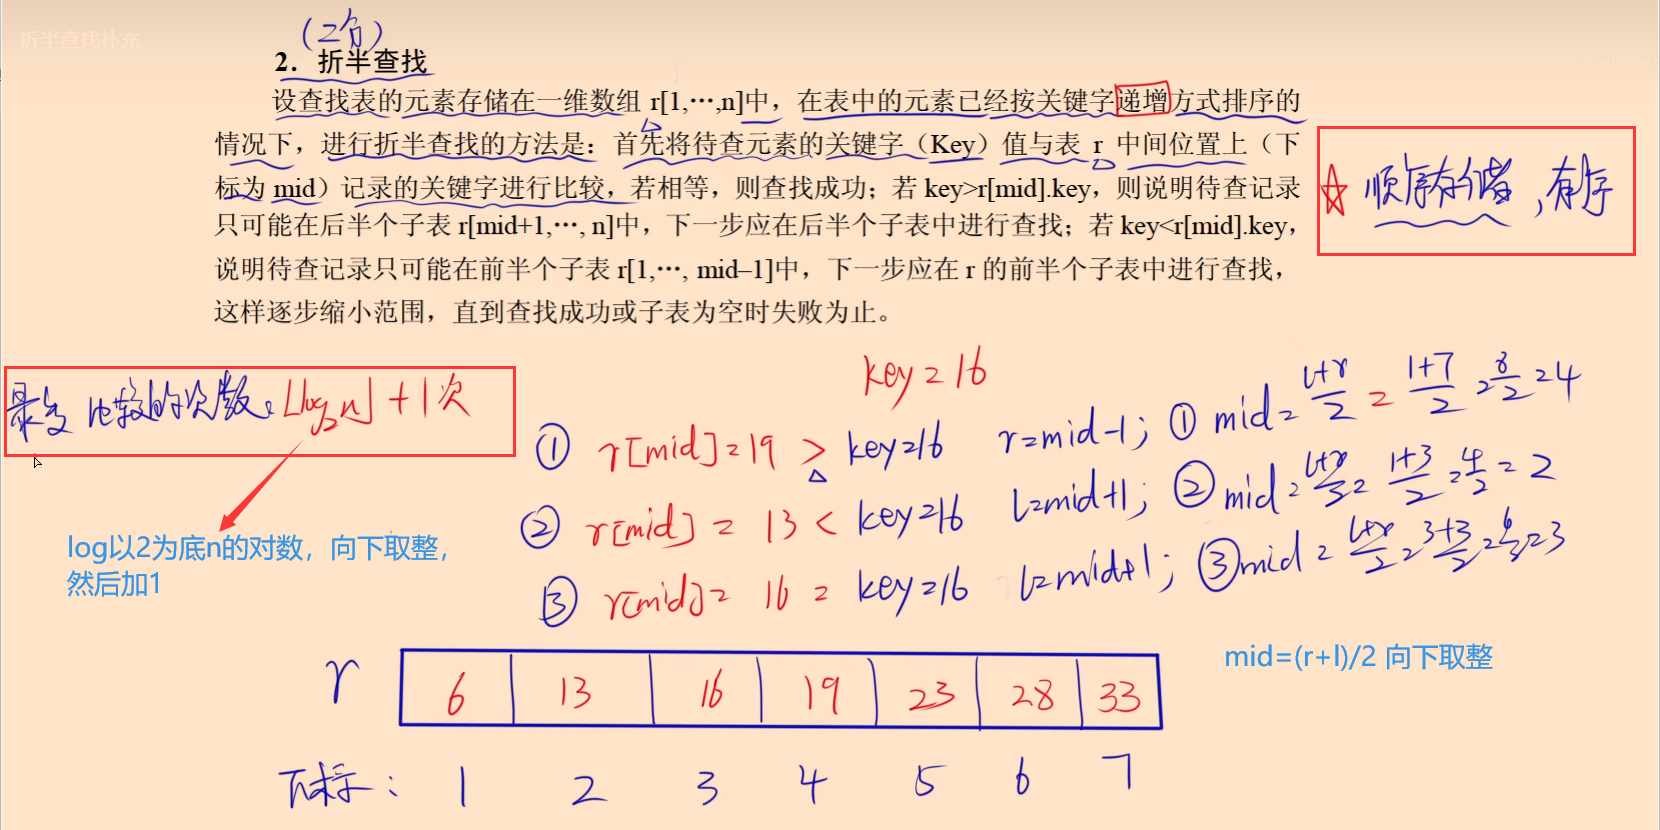 折半查找补充
(2分)
2．折半查找
设查找表的元素存储在一维数组 r[1,…,n]中，在表中的元素已经按关键字递增方式排序的
情况下，进行折半查找的方法是：首先将待查元素的关键字（Key）值与表 r 中间位置上（下
标为 mid）记录的关键字进行比较，若相等，则查找成功；若 key>r[mid].key，则说明待查记录
只可能在后半个子表 r[mid+1,…, n]中，下一步应在后半个子表中进行查找；若 key<r[mid].key，
说明待查记录只可能在前半个子表 r[1,…, mid–1]中，下一步应在 r 的前半个子表中进行查找，
这样逐步缩小范围，直到查找成功或子表为空时失败为止。
顺序存储，有序
最多比较的次数：⌊log₂n⌋+1次
log以2为底n的对数，向下取整，
然后加1
key=16
① r[mid]=19 > key=16 r=mid-1; ① mid=(l+r)/2=(1+7)/2=8/2=4
② r[mid]=13 < key=16 l=mid+1; ② mid=(l+r)/2=(1+3)/2=4/2=2
③ r[mid]=16=key=16 l=mid+1; ③ mid=(l+r)/2=(3+3)/2=6/2=3
mid=(r+l)/2 向下取整
r 6 13 16 19 23 28 33
下标： 1 2 3 4 5 6 7